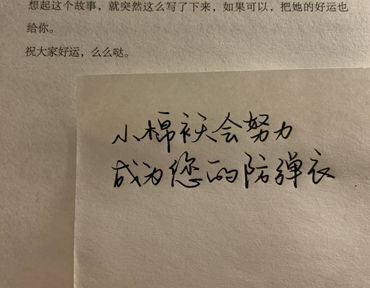 想起这个故事，就突然这么写了下来，如果可以，把她的好运也
给你。
祝大家好运，么么哒。
小棉袄会努力
成为您的防弹衣